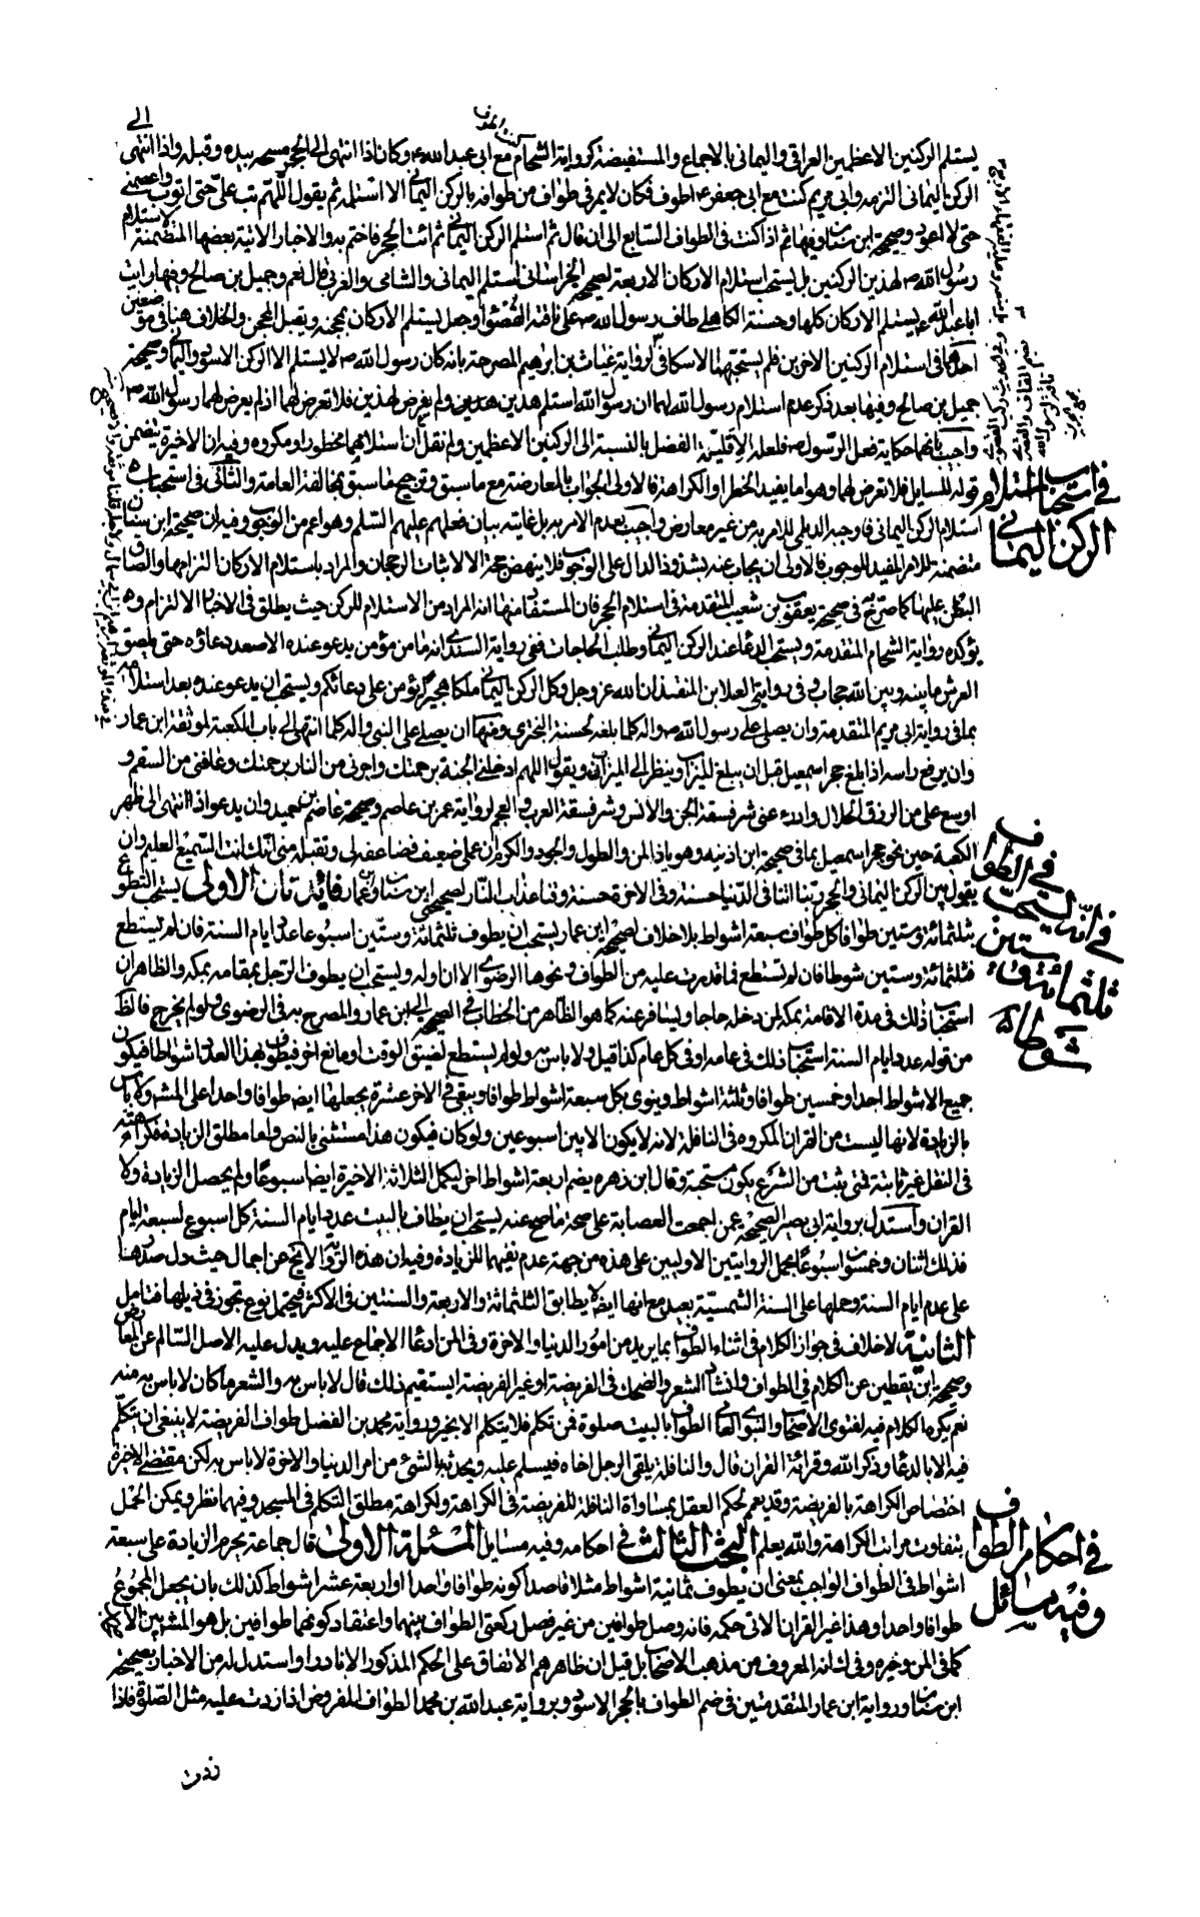 يستلم الركنين الاعظمين العراقي واليماني بالاجماع والمستفيضة كرواية الشحام مع ابي عبد الله ع وكان اذا انتهى الى الحجر مسحه بيده وقبله واذا انتهى الى
الركن اليماني التزمه وابي مريم كنت مع ابي جعفر ع اطوف فكان لا يمر في طواف من طوافه بالركن اليماني الا استلمه ثم يقول اللهم تب على حتى اتوب واعصمني
حتى لا اعود وصحيحة ابن سنان وفيها ثم اذا كنت في الطواف السابع الى ان قال ثم استلم الركن اليماني ثم ائت الحجر فاختم به والاخبار الاتية بعضها المتضمنة لاستلام
رسول الله ص لهذين الركنين بل يستحب استلام الاركان الاربعة لصحيحة الخراساني استلم اليماني والشامي والغربي قال نعم وجميل بن صالح وفيها رايت
ابا عبد الله ع يستلم الاركان كلها وحسنة الكاهلي طاف رسول الله ص على ناقته القصوا وجعل يستلم الاركان بمحجنه ويقبل المحجن والخلاف هنا في موضعين
احدهما في استلام الركنين الاخرين فلم يستحبهما الاسكافي لرواية غياث بن ابرهيم المصرحة بانه كان رسول الله ص لا يستلم الا الركن الاسود واليماني وصحيحة
جميل بن صالح وفيها بعد ذكر عدم استلام رسول الله لهما ان رسول الله استلم هذين ولم يعرض لهذين فلا تعرض لهما اذ لم يعرض لهما رسول الله ص
واجيب بانهما حكاية فعل الرسول ص فلعله لاقلية الفضل بالنسبة الى الركنين الاعظمين ولم نقل ان استلامهما محظور او مكروه وفيه ان الاخيرة يتضمن
قوله للسايل فلا تعرض لهما وهو اما يفيد الحظر او الكراهة فالاولى الجواب بالمعارضة مع ما سبق وترجيح ما سبق بمخالفة العامة والثاني في استحباب
استلام الركن اليماني فاوجبه الديلمي للامر به من غير معارض واجيب بعدم الامر به بل غايته بيان فعلهم عليهم السلم وهو اعم من الوجوب وفيه ان صحيحة ابن سنان
متضمنة للامر المفيد للوجوب فالاولى ان يجاب عنه بشذوذ الدال على الوجوب فلا ينهض حجة الا لاثبات الرجحان والمراد باستلام الاركان التزامها والصاق
البطن عليها كما صرح به في صحيحة يعقوب بن شعيب المتقدمة في استلام الحجر فان المستفاد منها انه المراد من الاستلام للركن حيث يطلق في الاخبار الالتزام
يؤكده رواية الشحام المتقدمة ويستحب الدعا عند الركن اليماني وطلب الحاجات ففي رواية السندي انه ما من مؤمن يدعو عنده الا صعد دعاؤه حتى يلصق
العرش ما بينه وبين الله حجاب وفي روايتي العلا بن المقعد ان الله عز وجل وكل الركن اليماني ملكا هجيرا يؤمن على دعائكم ويستحب ان يدعو عنده بعد استلامه
بما في رواية ابي مريم المتقدمة وان يصلي على رسول الله ص واله كلما بلغه لحسنة البختري ومنها ان يصلي على النبي واله كلما انتهى الى باب الكعبة لموثقة ابن عمار
وان يرفع راسه اذا بلغ حجر اسمعيل قبل ان يبلغ الميزاب وينظر الى الميزاب ويقول اللهم ادخلني الجنة برحمتك واجرني من النار برحمتك وعافني من السقم و
اوسع علي من الرزق الحلال وادرء عني شر فسقة الجن والانس وشر فسقة العرب والعجم لرواية عمر بن عاصم وصحيحة عاصم بن حميد وان يدعو اذا انتهى الى ظهر
الكعبة حين يجوز حجر اسمعيل بما في صحيحة ابن اذينة وهو يا ذا المن والطول والجود والكرم ان عملي ضعيف فضاعفه لي وتقبله مني انك انت السميع العليم وان
يقول بين الركن اليماني والحجر ربنا اتنا في الدنيا حسنة وفي الاخرة حسنة وقنا عذاب النار لصحيحتي ابن سنان وعمار فائدتان الاولى يستحب التطوع
بثلثمائة وستين طوافا كل طواف سبعة اشواط بلا خلاف لصحيحة ابن عمار يستحب ان يطوف ثلثمائة وستين اسبوعا عدد ايام السنة فان لم تستطع
فثلثمائة وستين شوطا فان لم تستطع فما قدرت عليه من الطواف ونحوها الرضوي الا ان اوله ويستحب ان يطوف الرجل بمقامه بمكة والظاهر ان
استحباب ذلك في مدة الاقامة بمكة لمن دخله حاجا وليسافر عنه كما هو الظاهر من الخطاب في الصحيحة الى ابن عمار والمصرح به في الرضوي ولو لم يخرج فالظ
من قوله عدد ايام السنة استحباب ذلك في عامه او في كل عام كذا قيل ولا باس به ولو لم يستطع لضيق الوقت او مانع اخر فيطوف بهذا العدد اشواطا فيكون
جميع الاشواط احدا وخمسين طوافا وثلثة اشواط وينوى بكل سبعة اشواط طوافا ويبقى في الاخر عشرة يجعلها ايضه طوافا واحدا على المشهور ولا باس
بالزيادة لانها ليست من القران المكروه في النافلة لانه لا يكون الا بين اسبوعين ولو كان فيكون هذا مستثنى بالنص واما مطلق الزيادة فكراهته
في النفل غير ثابتة فمتى يثبت من الشرع يكون مستحبة وقال ابن زهره يضم اربعة اشواط اخر ليكمل الثلاثة الاخيرة ايضا اسبوعا ولم يحصل الزيادة ولا
القران واستدل برواية ابي بصير الصحيحة عمن اجمعت العصابة على صحة ما صح عنه يستحب ان يطاف بالبيت عدد ايام السنة كل اسبوع لسبعة ايام
فذلك اثنان وخمسون اسبوعا بحمل الروايتين الاوليين على هذه من جهة عدم نفيهما للزيادة وفيه ان هذه الرواية لا يخ عن اجمال حيث دل صدرها
على عدد ايام السنة وحملها على السنة الشمسية بعيد مع انها ايضه لا يطابق الثلثمائة والاربعة والستين في الاكثر فيحتمل نوع تجوز في ذيلها فتامل
الثانية لا خلاف في جواز الكلام في اثناء الطواف بما يريد من امور الدنيا والاخرة وفي المن ادعا الاجماع عليه ويدل عليه الاصل السالم عن المعارض
وصحيحة ابن يقطين عن الكلام في الطواف وانشاد الشعر والضحك في الفريضة او غير الفريضة ايستقيم ذلك قال لا باس به والشعر ما كان لا باس به منه
نعم يكره الكلام فيه لفتوى الاصحاب والنبوي العامي الطواف بالبيت صلوة فمن تكلم فلا يتكلم الا بخير ورواية محمد بن الفضل طواف الفريضة لا ينبغي ان يتكلم
فيه الا بالدعا وذكر الله وقرائة القران قال والنافلة يلقى الرجل اخاه فيسلم عليه ويحدثه بالشيء من امر الدنيا والاخرة لا باس به لكن مقتضى الاخيرة
اختصاص الكراهة بالفريضة وقد يعم لحكم العقل بمساواة النافلة للفريضة في الكراهة ولكراهة مطلق التكلم في المسجد وفيهما نظر ويمكن الحمل
بتفاوت مراتب الكراهة والله يعلم البحث الثالث في احكامه وفيه مسايل المسئلة الاولى قال جماعة يحرم الزيادة على سبعة
اشواط في الطواف الواجب بمعنى ان يطوف ثمانية اشواط مثلا قاصدا كونه طوافا واحدا او اربعة عشر اشواط كذلك بان يجعل المجموع
طوافا واحدا وهذا غير القران الاتي حكمه فانه وصل طوافين من غير فصل ركعتي الطواف بينهما واعتقاد كونهما طوافين بل هو المشهور بين الاصحاب
كما في المن وغيره وفي ك انه المعروف من مذهب الاصحاب بل قيل ان ظاهرهم الاتفاق على الحكم المذكور الا نادرا واستدل له من الاخبار بصحيحة
ابن سنان ورواية ابن عمار المتقدمتين في ضم الطواف بالحجر الاسود وبرواية عبد الله بن محمد الطواف المفروض اذا زدت عليه مثل الصلوة فاذا
زدت
في استحباب استلام
الركن اليماني
في الطواف
في انه يستحب
ستين
ثلثمائة و
شوطا
في احكام الطواف
وفيه مسائل